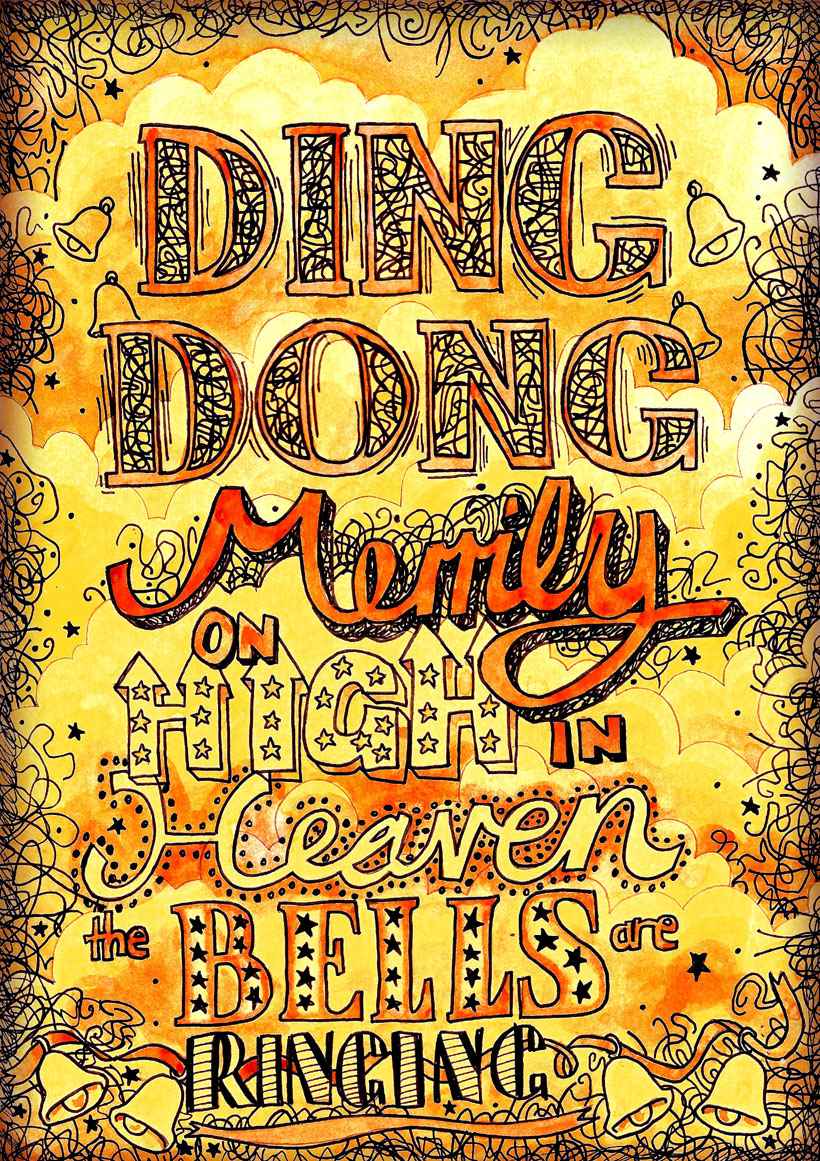 DING
DONG
Merrily
ON
HIGH IN
Heaven
the BELLS are
RINGING